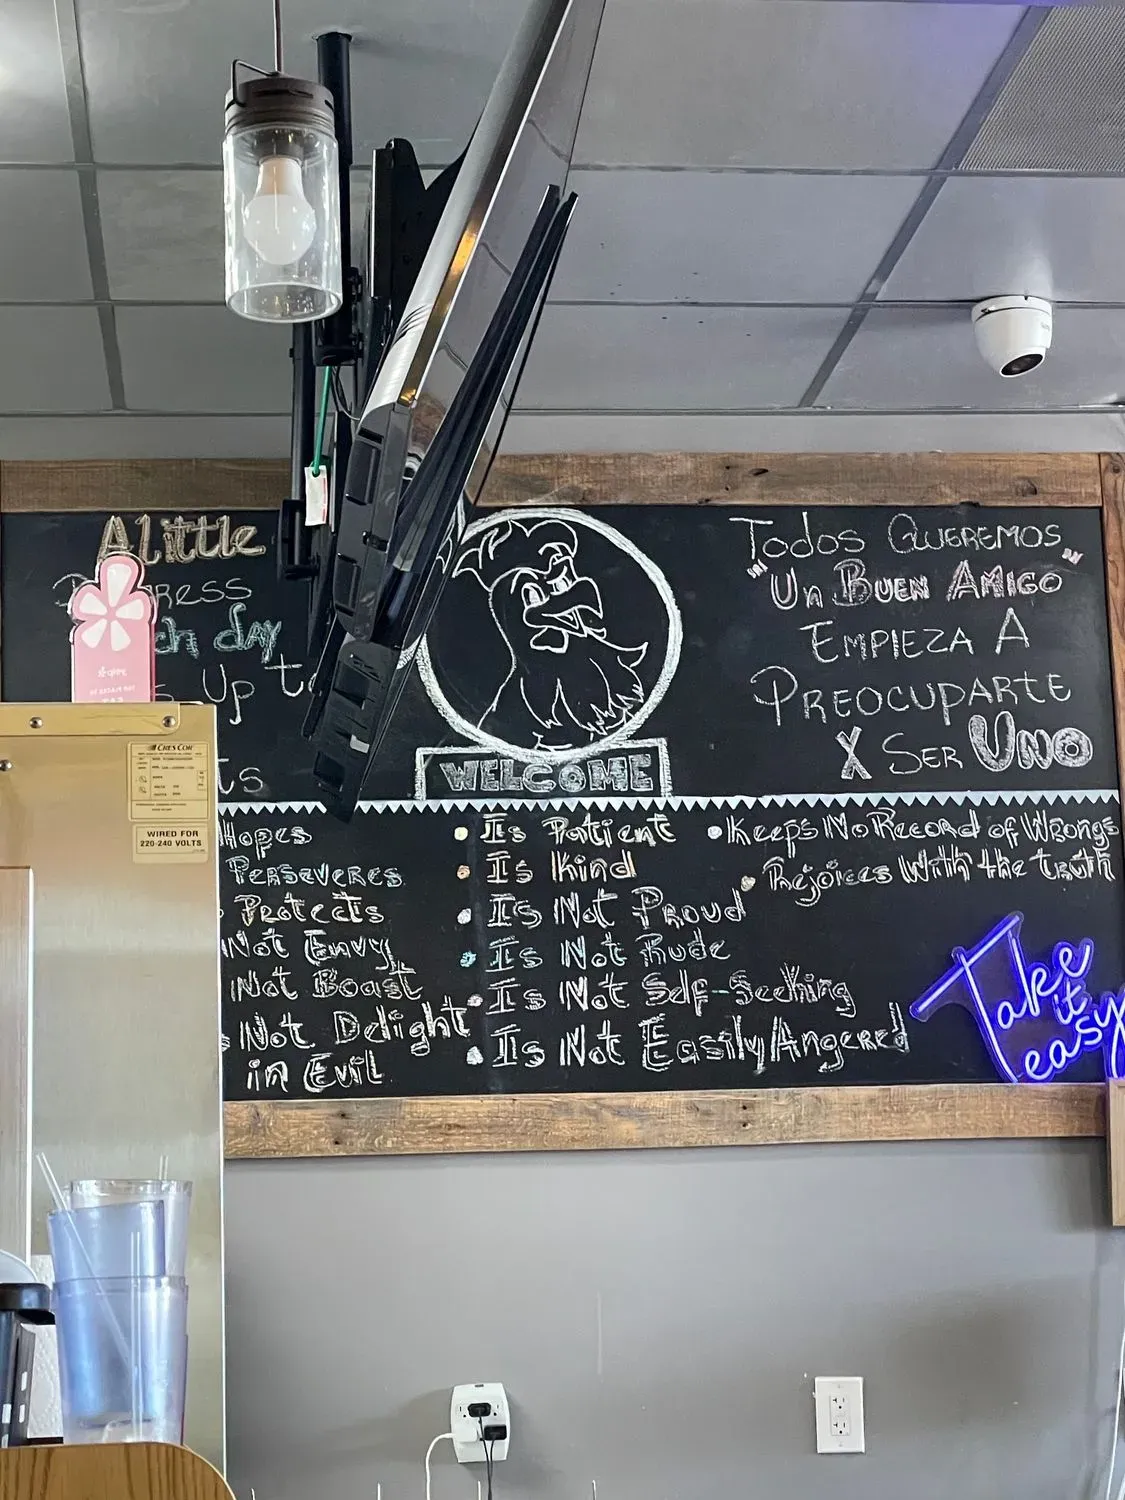 A little
ress
ch day
Up to
ts
WELCOME
Todos Queremos
"Un Buen Amigo"
Empieza A
Preocuparte
X Ser Uno
Hopes
Perseveres
Protects
Not Envy
Not Boast
Not Delight
in Evil
Is Patient
Is Kind
Is Not Proud
Is Not Rude
Is Not Self-Seeking
Is Not Easily Angered
Keeps No Record of Wrongs
Rejoices With the truth
Take
it
easy
CRES COR
WIRED FOR
220-240 VOLTS